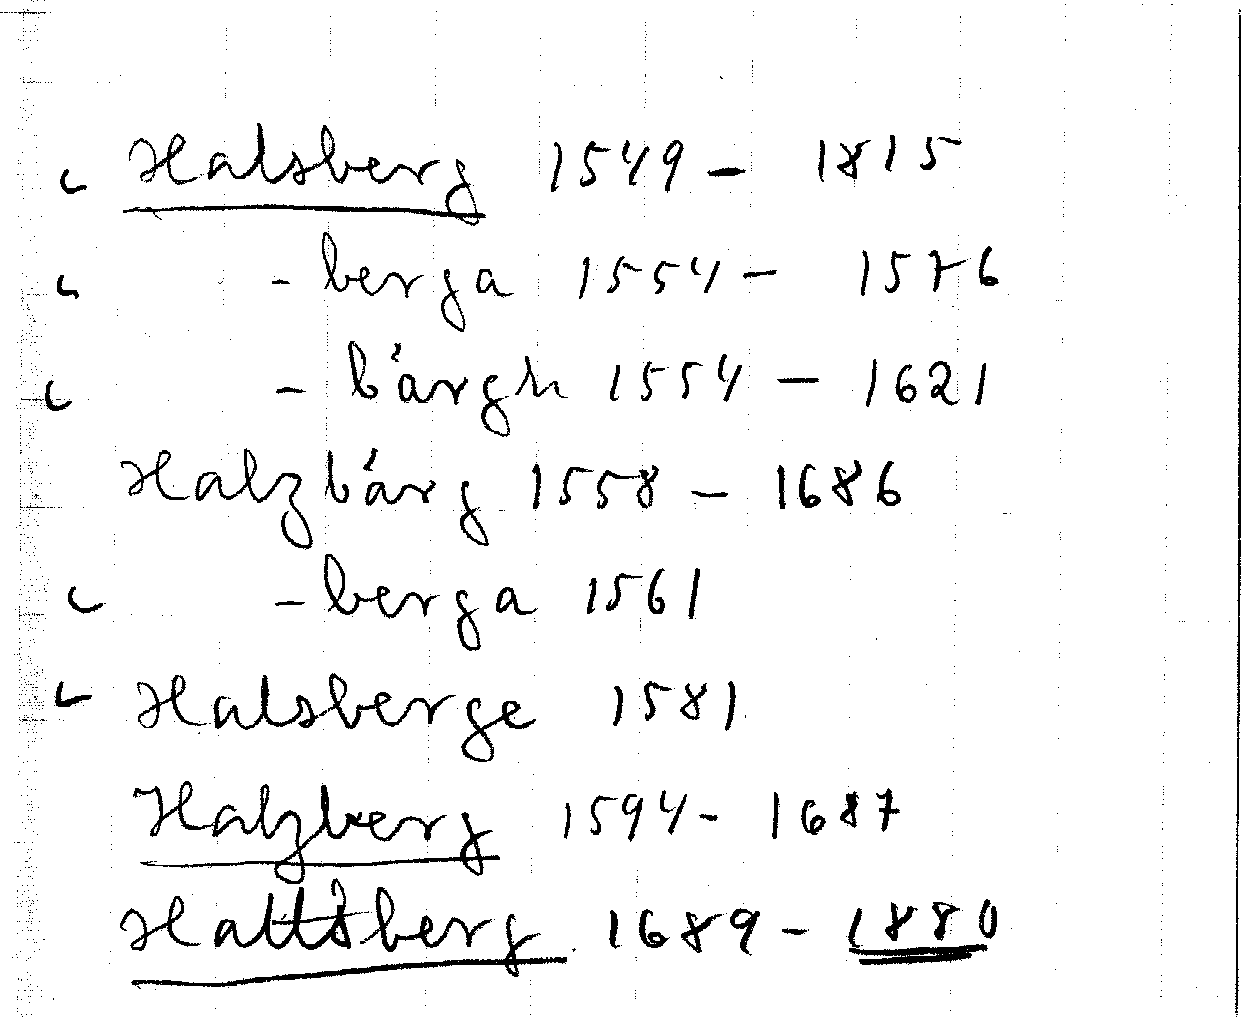 Halsberg 1549 – 1815
- berga 1554 – 1576
- bärgh 1554 – 1621
Halzbärg 1558 – 1686
- berga 1561
Halsberge 1581
Halzberg 1594 - 1687
Hallsberg 1689 - 1880